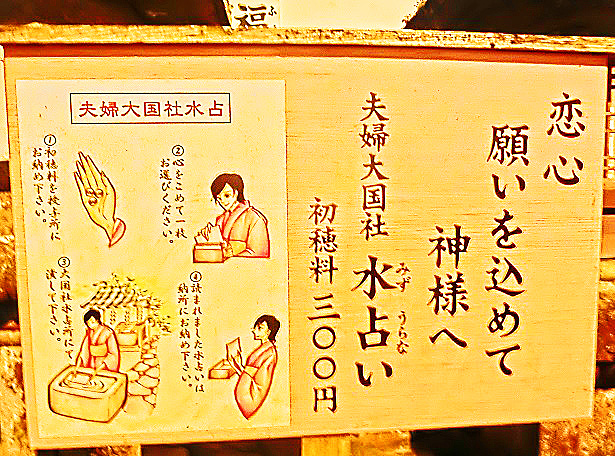 福
恋心
願いを込めて
神様へ
夫婦大国社 水占い
みず うらな
初穂料 三〇〇円
夫婦大国社水占
①初穂料を授与所に
お納め下さい。
②心をこめて一枚
お選びください。
③大国社水占所にて
漬して下さい。
④読まれました水占いは
納所にお納め下さい。